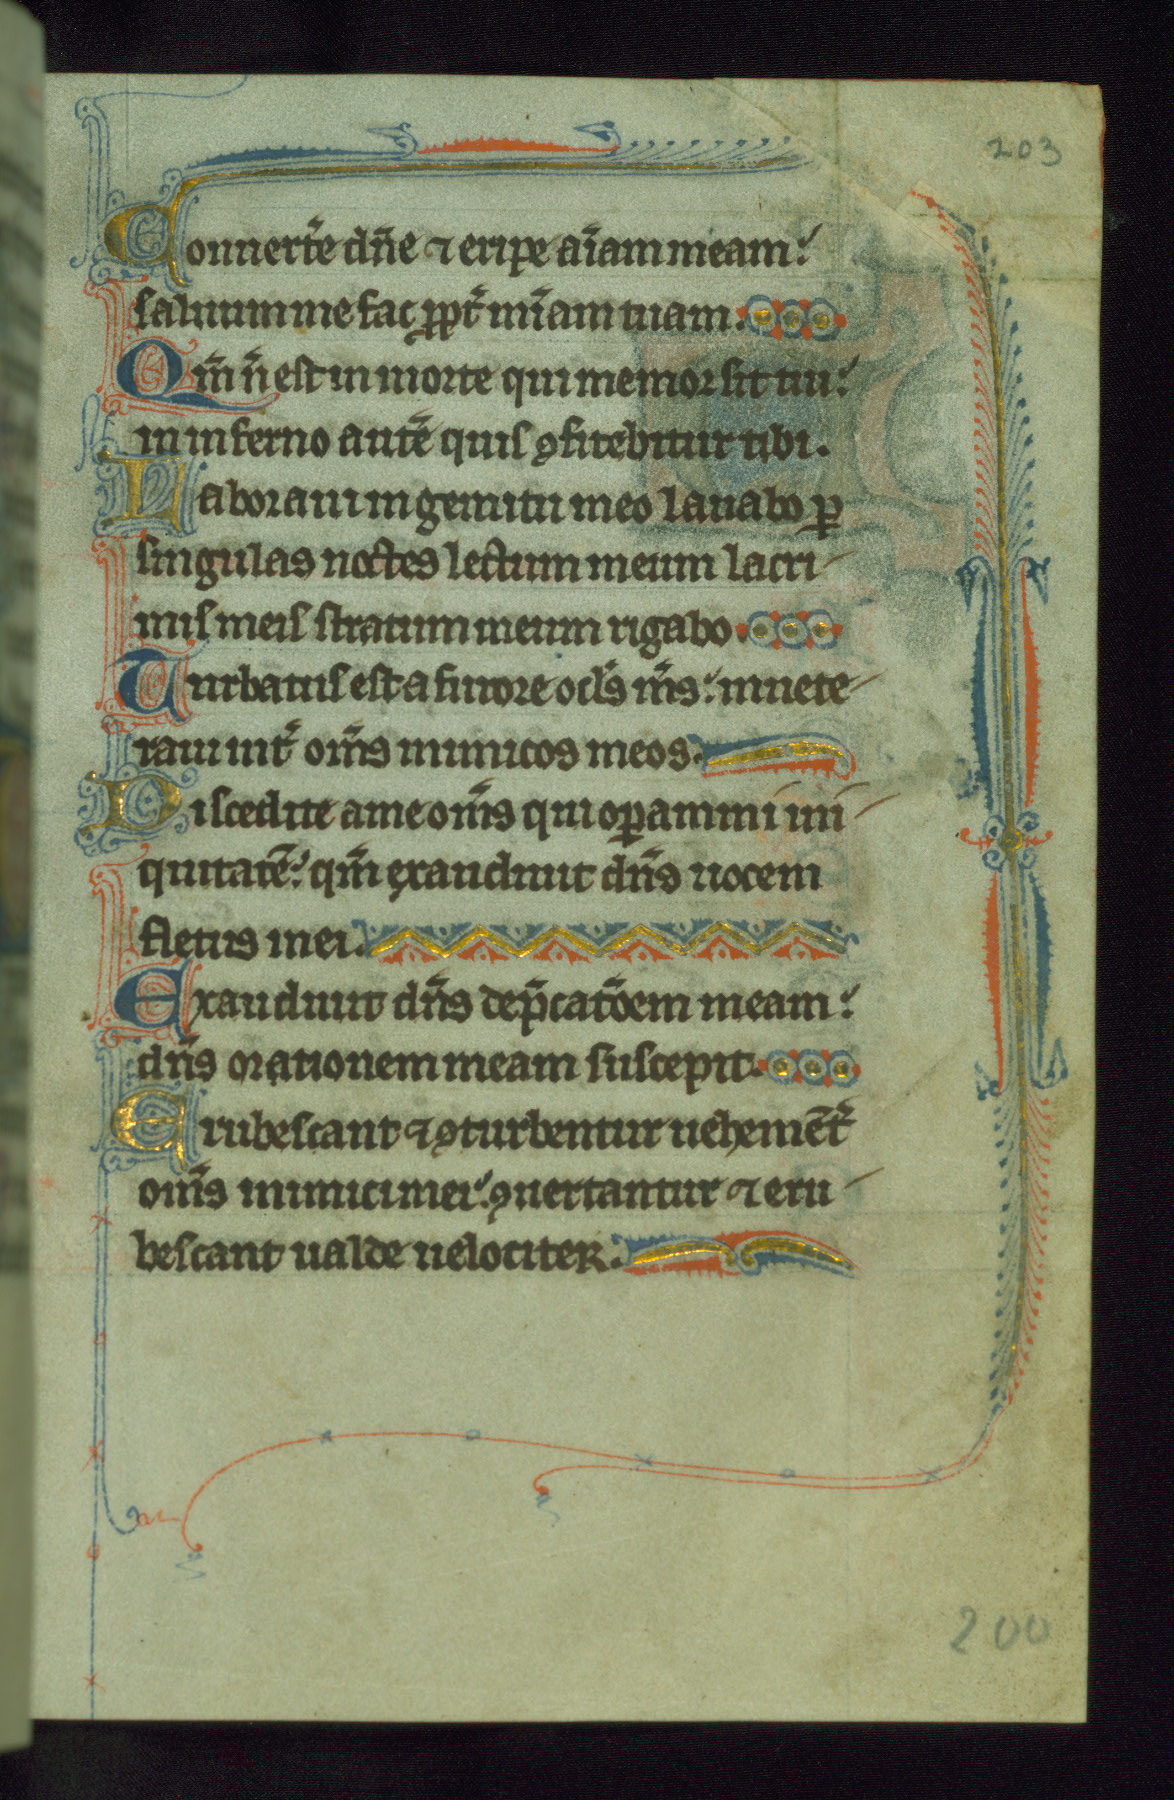 203
Conuert̃e dñe ⁊ eripe aĩam meam:
saluum me fac ꝓpt̃ mĩam tuam.
Qm̃ ñ est in morte qui memor sit tui:
in inferno aut̃e quis ꝯfitebitur tibi.
Laboraui in gemitu meo lauabo ꝑ
singulas noctes lectum meum lacri
mis meis stratum meum rigabo.
Turbatus est a furore ocl̃s m̃s: inuete
raui int̃ om̃s inimicos meos.
Discedite a me om̃s qui oꝑamini ini
quitatẽ: qm̃ exaudiuit dñs uocem
fletus mei.
Exaudiuit dñs dep̃cat̃oem meam:
dñs orationem meam suscepit.
Erubescant ⁊ ꝯturbentur uehemẽt̃
om̃s inimici mei: ꝯuertantur ⁊ eru
bescant ualde uelociter.
200